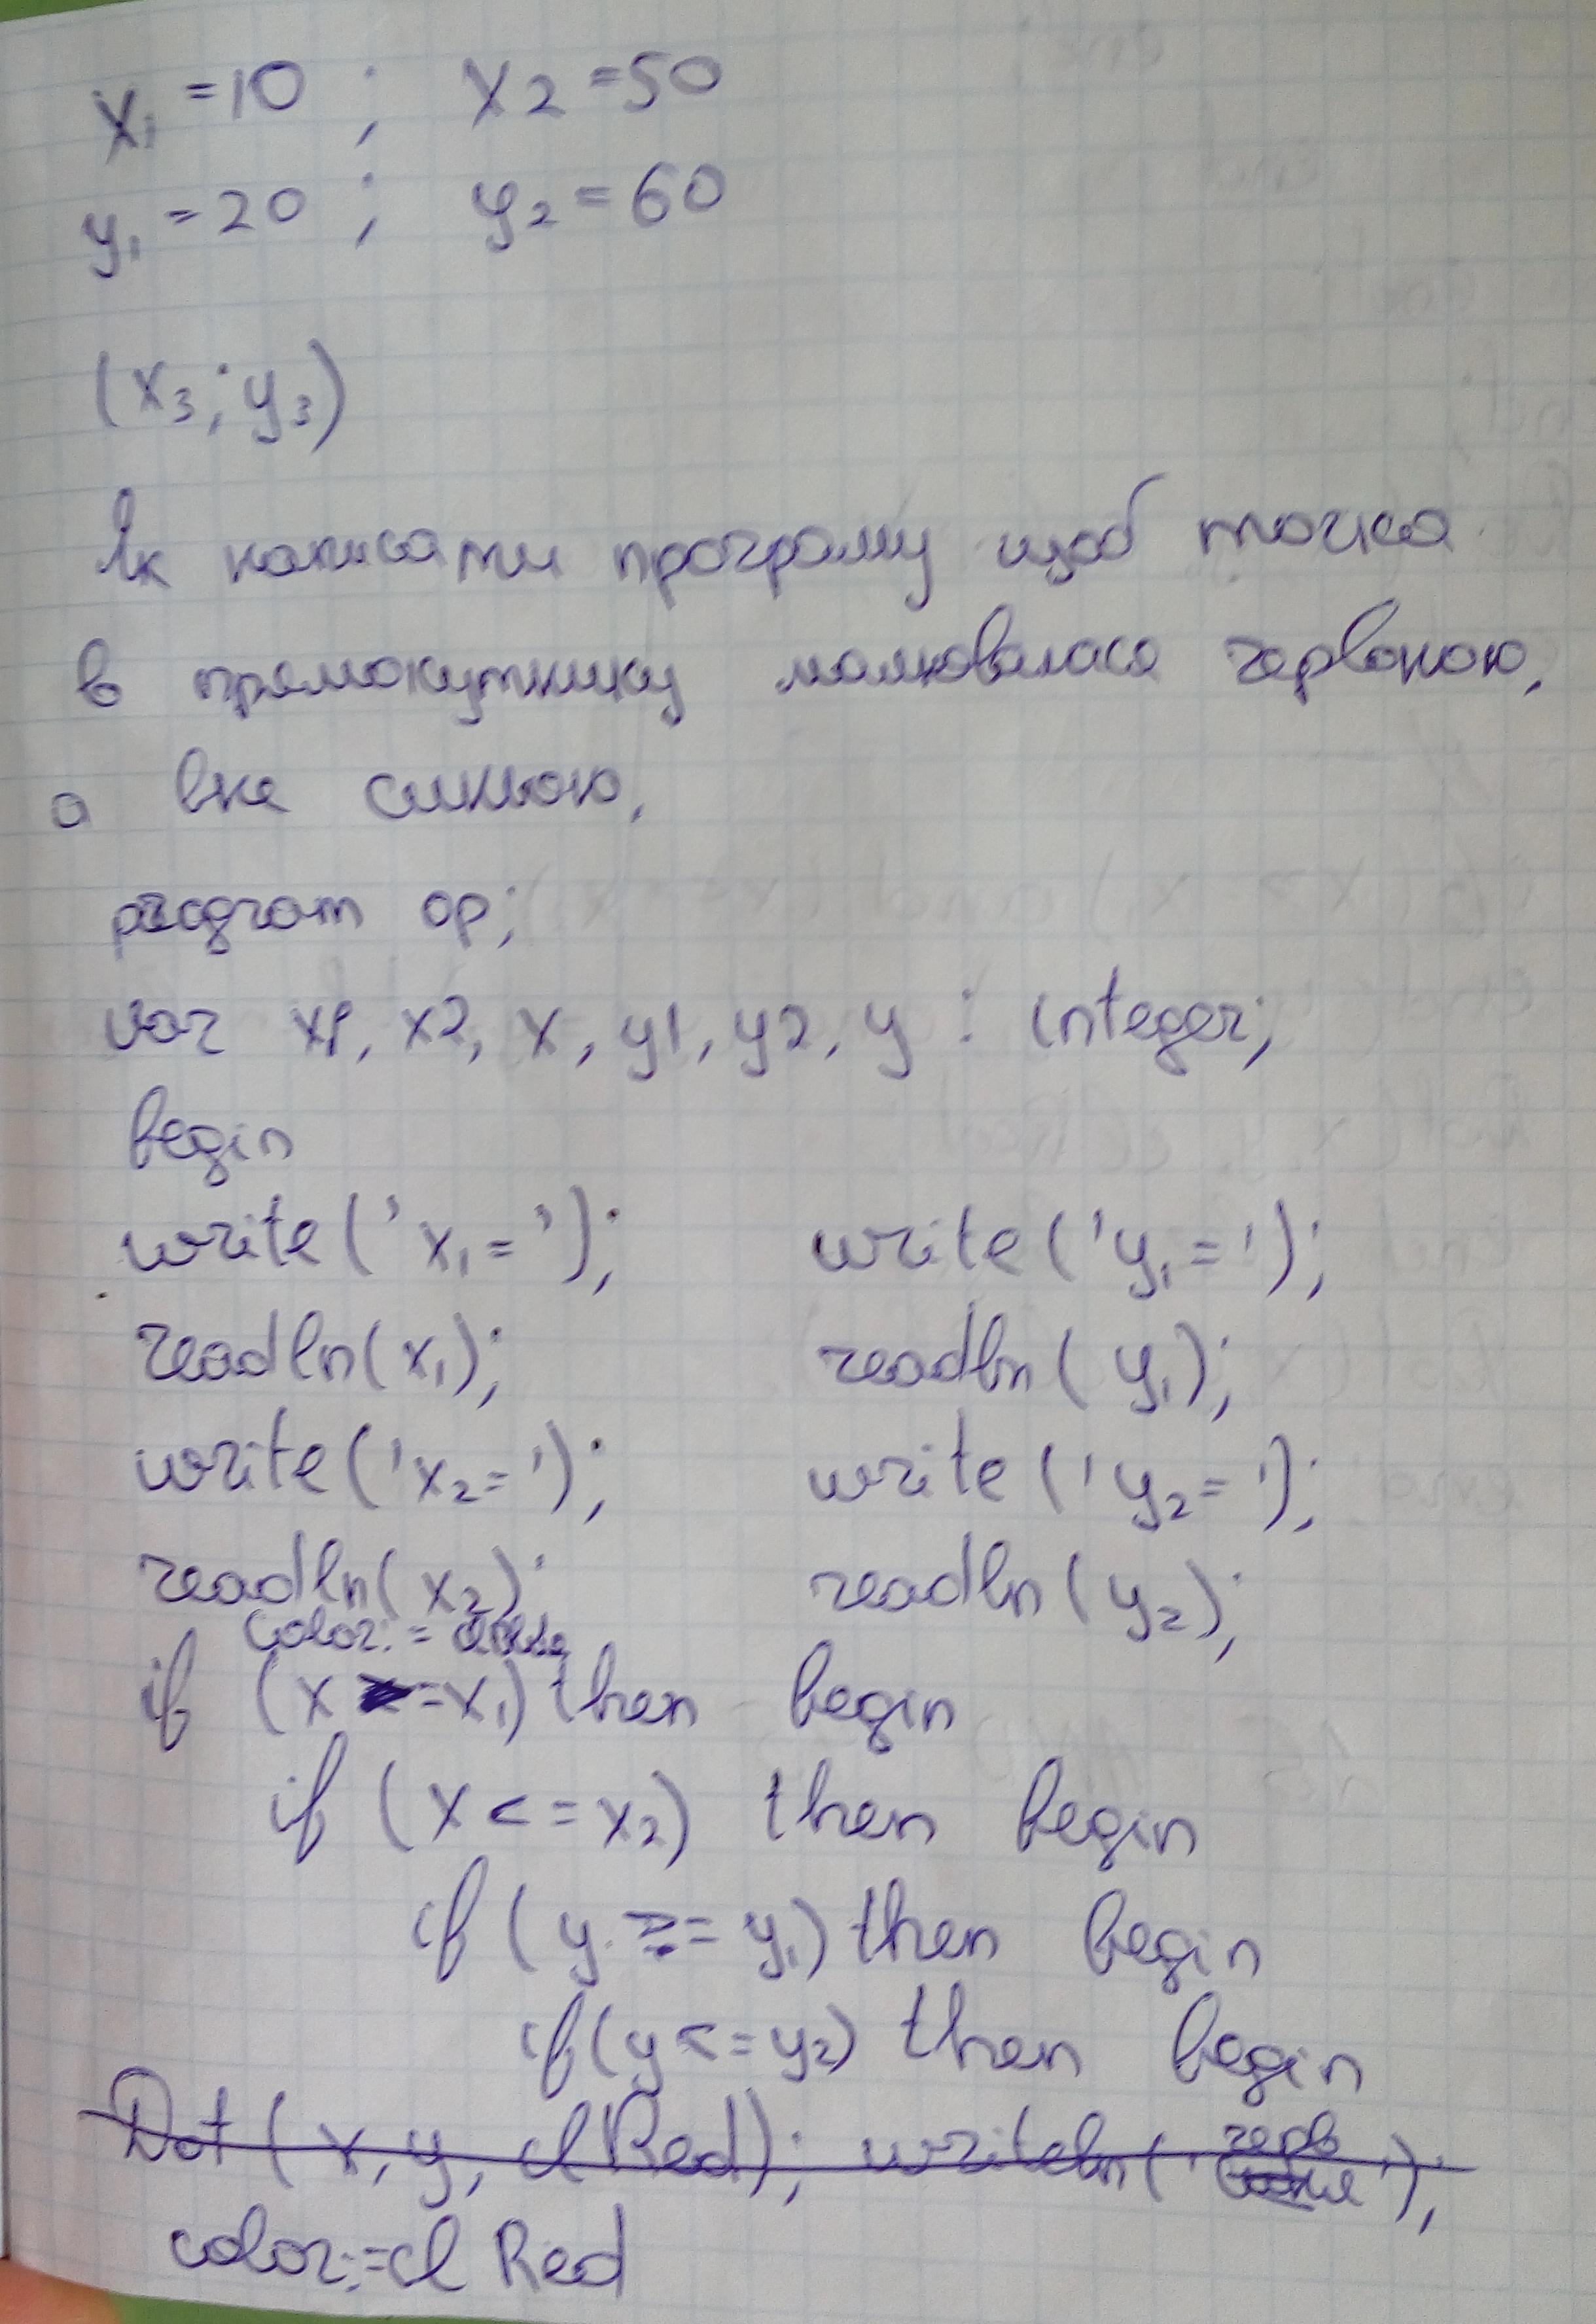 x₁ = 10 ; x₂ = 50
y₁ = 20 ; y₂ = 60
(x₃; y₃)
Як написати програму щоб точка
в прямокутнику малювалася червоною,
а вне синьою,
program op;
var x1, x2, x, y1, y2, y : integer;
begin
write('x₁='); write('y₁=');
readln(x₁); readln(y₁);
write('x₂='); write('y₂=');
readln(x₂); readln(y₂);
color:=
if (x >= x₁) then begin
if (x <= x₂) then begin
if (y >= y₁) then begin
if (y <= y₂) then begin
Dot(x, y, clRed); writeln('черв');
color:=cl Red